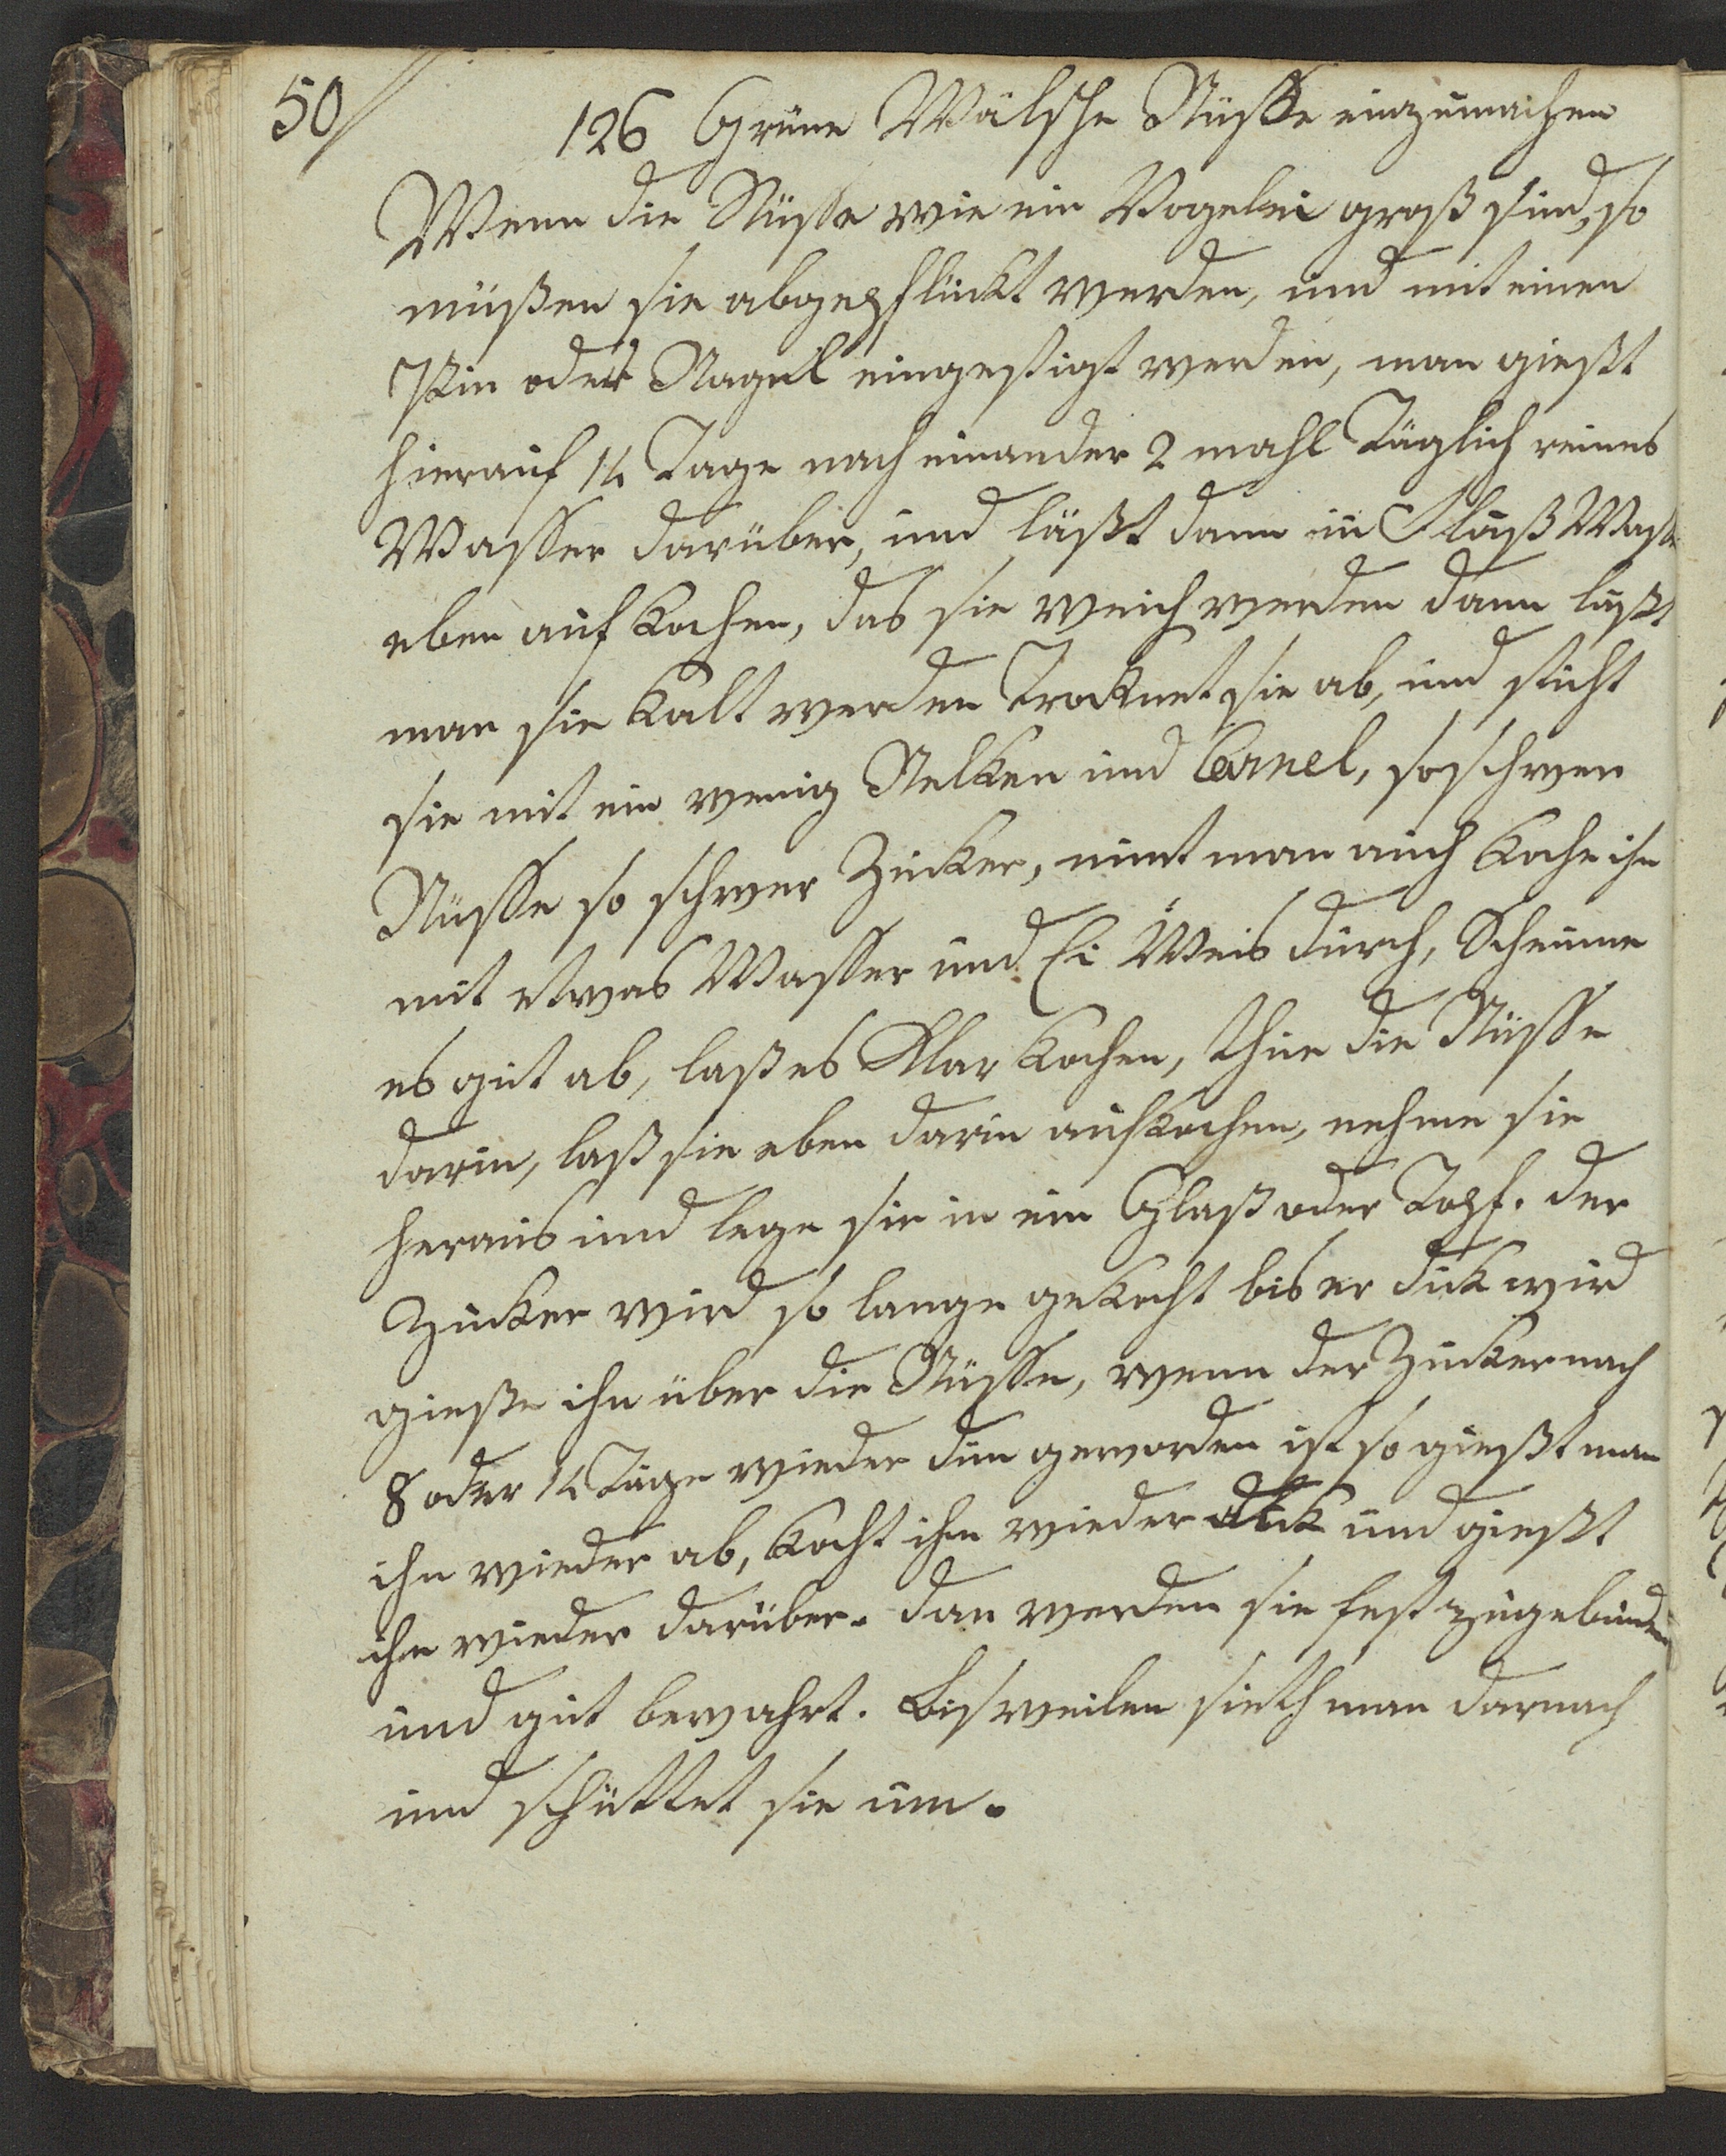 50/
126 Grüne Wälsche Nüsse einzumachen
Wenn die Nüsse wie ein Vogelei groß sind, so
müßen sie abgepflückt werden, und mit einen
Pin oder Nagel eingestigt werden, man gießt
hierauf 14 Tage nach einander 2 mahl Täglich reines
Wasser darüber, und läßt dann in Fluß Wasser
eben auf kochen, das sie weich werden dann läßt
man sie kalt werden Trocknet sie ab, und sticht
sie mit ein wenig Nelken und Canel, so schwer
Nüsse so schwer Zucker, nimt man auch koche ihn
mit etwas Wasser und Ei Weis durch, Scheume
es gut ab, laß es Klar kochen, thue die Nüsse
darin, laß sie eben darin aufkochen, nehme sie
heraus und lege sie in ein Glaß oder Topf. der
Zucker wird so lange gekocht bis er dick wird
gieße ihn über die Nüsse, wenn der Zucker nach
8 oder 14 Tage wieder dün geworden ist so gießt man
ihn wieder ab, kocht ihn wieder dick und gießt
ihn wieder darüber. dan werden sie fest zugebunden
und gut bewahrt. Bisweilen sieth man darnach
und schüttet sie um.